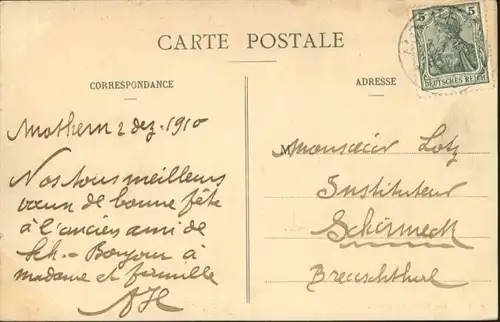 CARTE POSTALE
CORRESPONDANCE
ADRESSE
5 5
DEUTSCHES REICH
Mothern 2 dez. 1910
Nos tous meilleurs
vœux de bonne fête
à l'ancien ami de
Sch. - Bonjour à
madame et famille
AH
M Monsieur Lotz
Instituteur
Schirmeck
Breuschthal